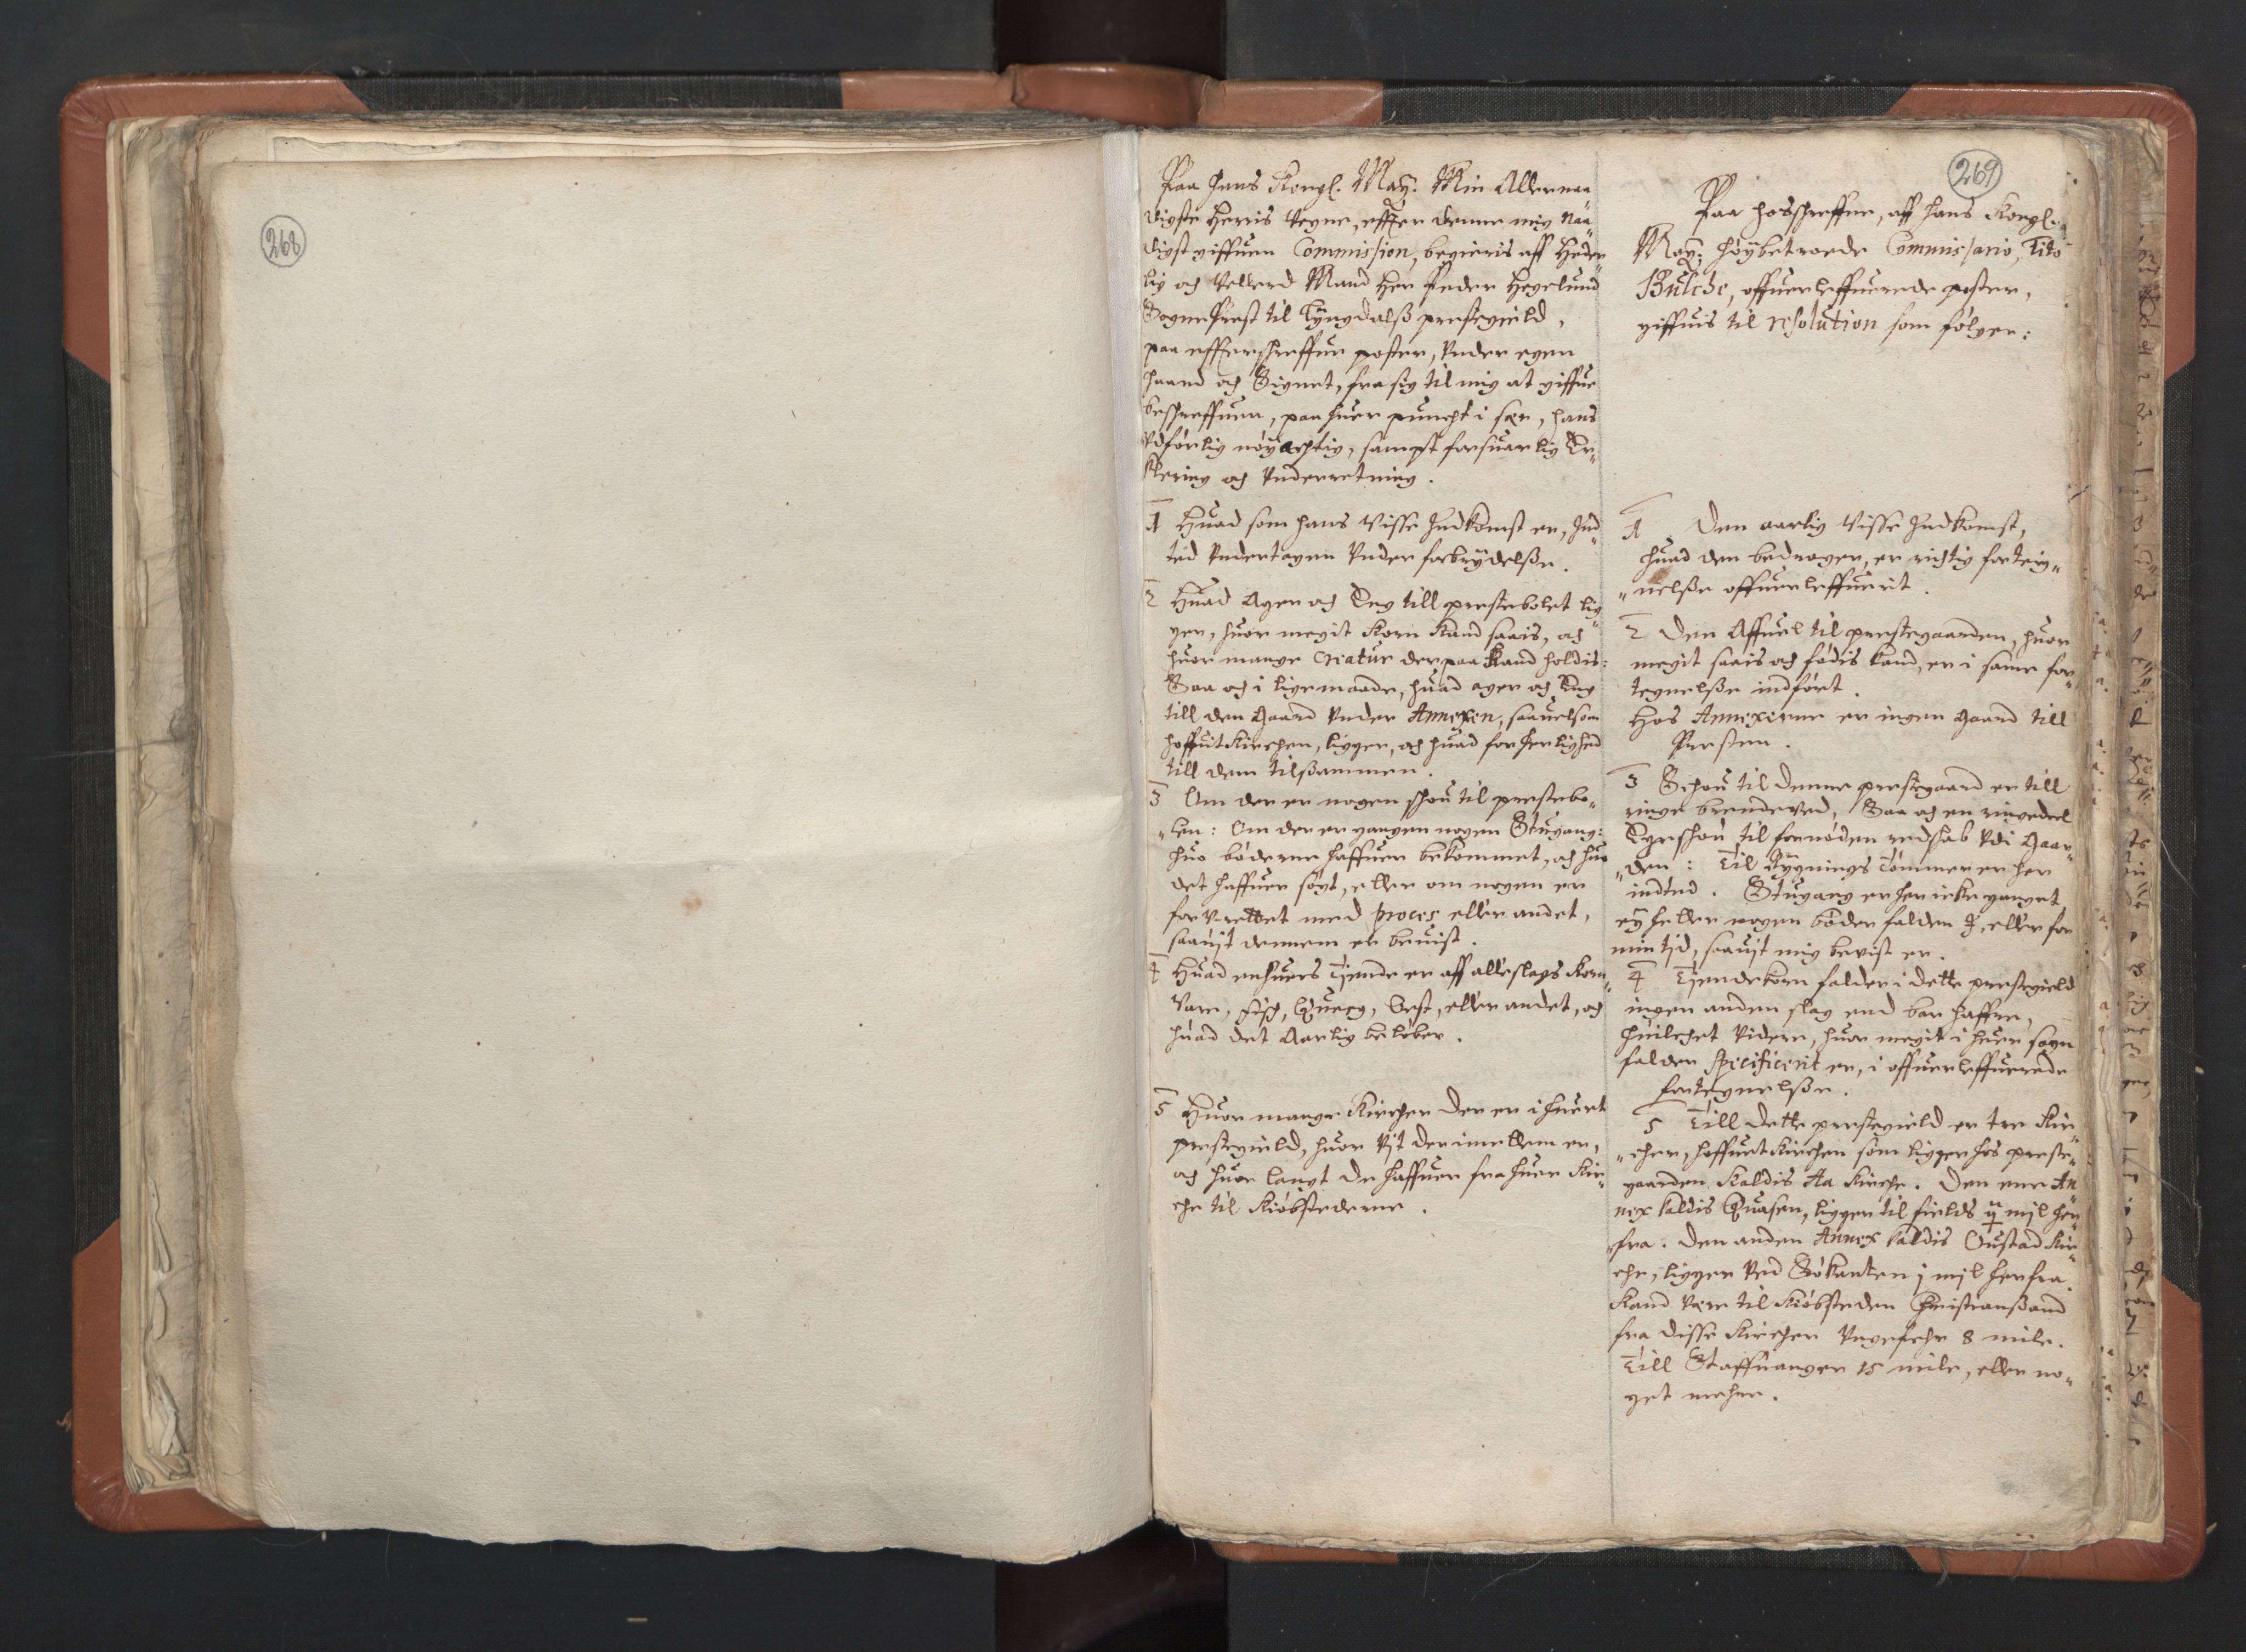 268
269
Paa Hans Kongl. May. Min Allernaa
digste Herris Vegne, effter denne mig naa
digst giffuen Commission, begieris aff Heder
lig och Vellerd Mand Her Peder Hegelund
SognePrest til Lyngdalß prestegield,
paa effterschreffne poster, Under egen
haand och Signet, fra sig til mig at giffue
beschreffuen, paa huer puncht i sær, hans
Udførlig nøyachtig, sampt forsuarlig Er
klering och Underretning.
1 Huad som hans Visse Indkomst er, Ind
tid Undertagen Under forbrydelße.
2 Huad Ager och Eng till prestebolet lig
ger, huor megit Korn kand saais, och
huor mange Creatur der paa kand holdis:
Saa och i ligemaade, huad ager och Eng
till den Gaard Under Annexen, saauelsom
hoffuitKirchen, ligger, och huad for herlighed
till dem tilßammen.
3 Om der er nogen schou til prestebo„
„len: Om der er gangen nogen Stugang:
huo bøderne haffuer bekommet, och huo
det haffuer søgt, eller om nogen er
for Urettet med proces eller andet,
saauit dennem er beuist.
4 Huad enhuers Tjende er aff alleslags Korn
Vare, fisch, Quæg, Ost, eller andet, och
huad det Aarlig beløber.
5 Huor mange Kircher der er i huert
prestegield, huor Vit der imellem er,
och huor langt de haffuer fra huer Kir„
che til Kiøbstederne.
Paa hosschreffne, aff Hans Kongl.
May: Høybetroede Commissario, Tito
Bülche, offuerleffuerede poster,
giffuis til resolution som følger:
1 Den aarlig Visse Indkomst,
huad den bedrager, er richtig forteig„
„nelße offuerleffuerit.
2 Den Affuel til prestegaarden, huor
megit saais och fødis kand, er i samme for„
tegnelße indført.
Hos Annexerne er ingen gaard till
Presten.
3 Schou til denne prestegaard er till
ringe brendeved, Saa och en ringedeel
Egeschou til fornøden redschab Udi Gaar„
„den: Til Bygnings Tømmer er her
inted. Stugang er her icke ganget
ey heller nogen bøder falden i, eller for
min tid, saauit mig bevist er.
4 Tjendekorn falder i dette prestegield
ingen anden slag end bar haffre,
huilchet Videre, huor megit i huer sogn
falder specificerit er, i offuerleffuerede
fortegnelße.
5 Till dette prestegield er tre Kir„
„cher, hoffuetkirchen som ligger hos preste„
gaarden kaldis Aa kirche. Den ene An
nex kaldis Quasen, ligger til fields mijl her
„fra. Den anden Annex kaldis Oustad Kir
che, ligger Ved Søkanten j mijl herfra
kand være til Kiøbsteden Christianßand
fra disse Kircher Ungefehr 8 mile.
Till Staffuanger 15 mile, eller no„
get mehre.